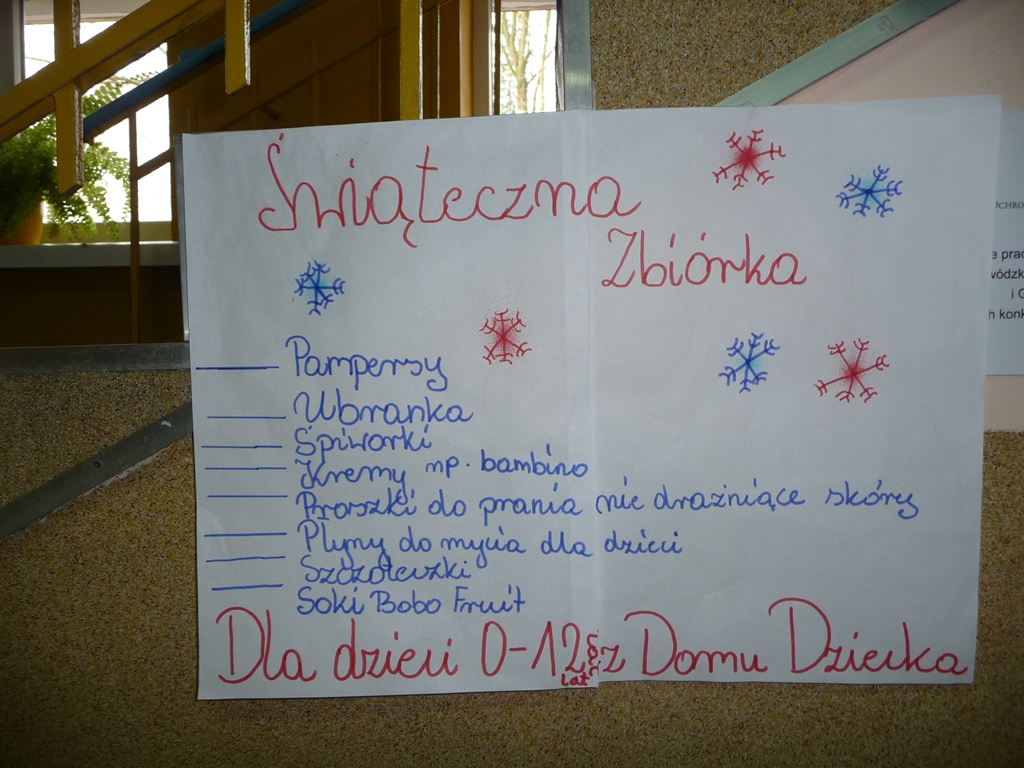 Świąteczna
Zbiórka
Pampersy
Ubranka
Śpiworki
Kremy np. bambino
Proszki do prania nie drażniące skóry
Płyny do mycia dla dzieci
Szczoteczki
Soki Bobo Fruit
Dla dzieci 0-12 z Domu Dziecka
lat
i G